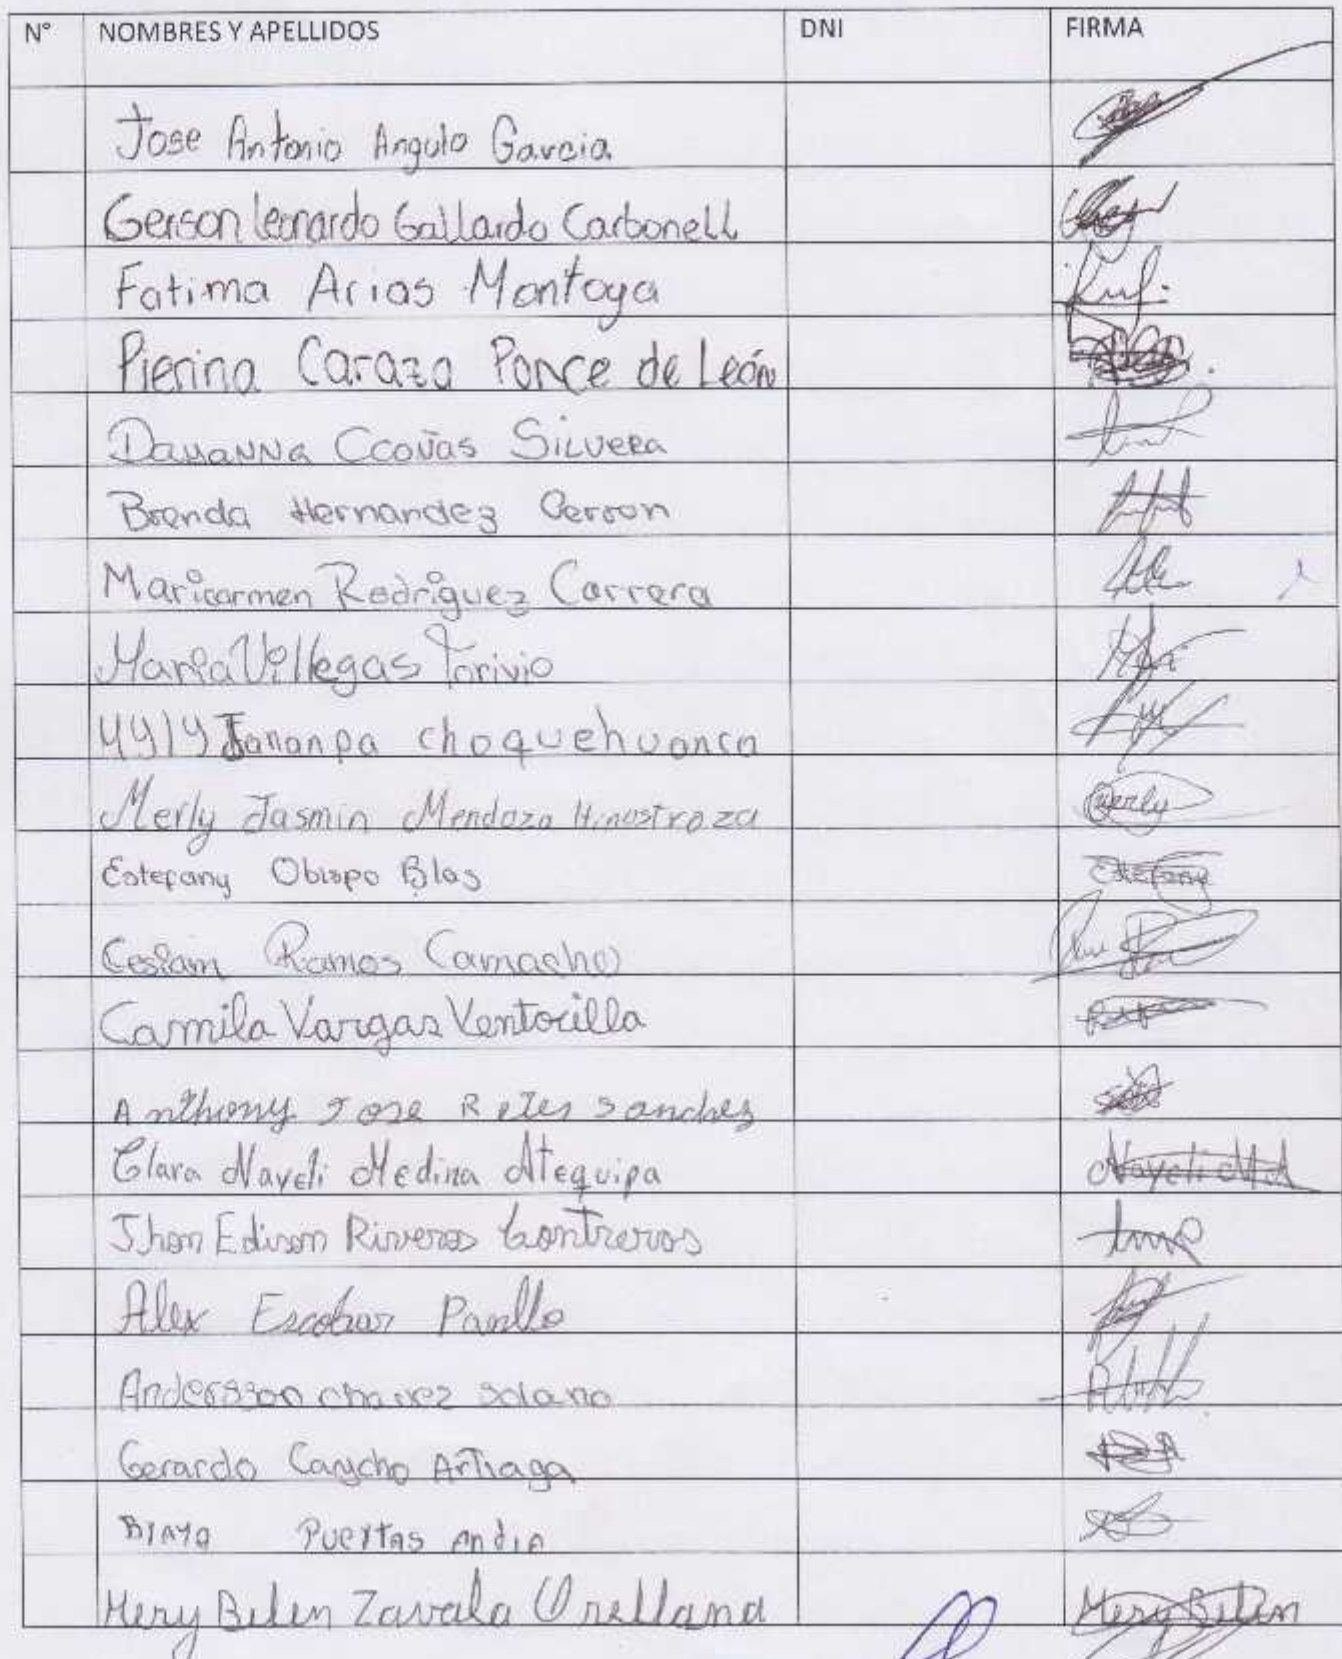 N° NOMBRES Y APELLIDOS DNI FIRMA
Jose Antonio Angulo Garcia
Gerson Leonardo Gallardo Carbonell
Fatima Arias Montoya
Pierina Carazo Ponce de León
Dayanna Ccoñas Silvera
Brenda Hernandez Cerron
Maricarmen Rodriguez Carrera
Maria Villegas Torivio
choquehuanca
Merly Jasmin Mendoza Hinostroza Merly
Estefany Obispo Blas Estefany
Ramos Camacho
Camila Vargas Ventocilla
Anthony Jose Retes Sanchez
Clara Nayeli Medina Atequipa Nayeli M A
Jhon Edison Riveros Contreras
Alex Escobar
Andersson chavez solano
Gerardo Artiaga
Puertas Andia
Mery Belen Zavala Orellana Mery Belen